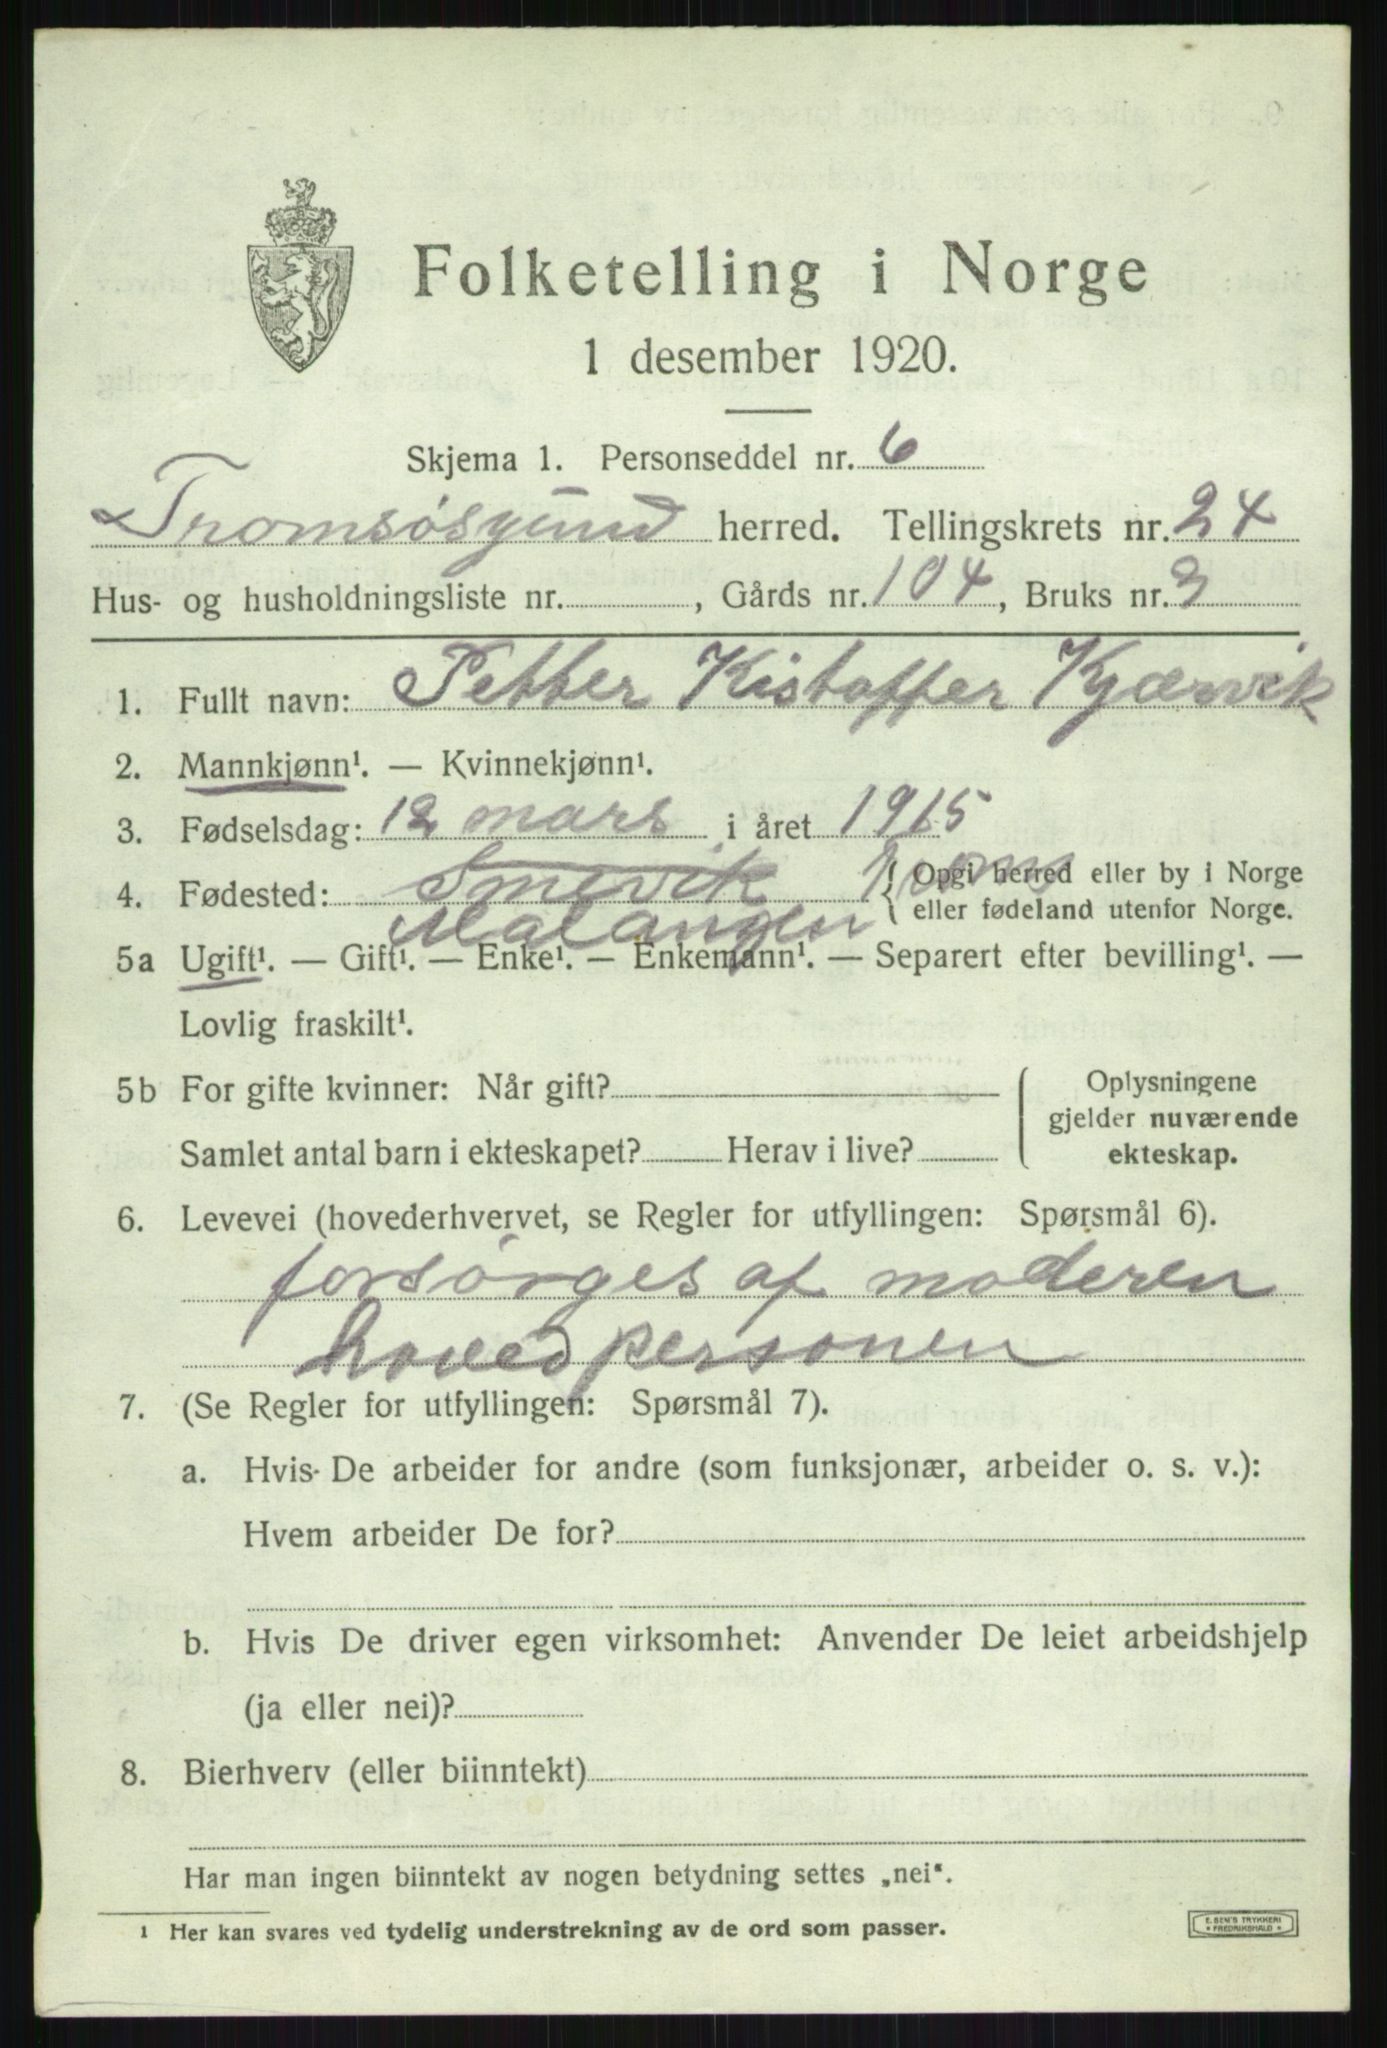 Folketelling i Norge
1 desember 1920.
Skjema 1. Personseddel nr. 6
Tromsøsund herred. Tellingskrets nr. 24
Hus- og husholdningsliste nr. , Gårds nr. 104, Bruks nr. 3
1. Fullt navn: Petter Kistoffer Kjærvik
2. Mannkjønn¹. — Kvinnekjønn¹.
3. Fødselsdag: 12 mars i året 1915
4. Fødested: Smevik Troms { Opgi herred eller by i Norge
Malangen eller fødeland utenfor Norge.
5a Ugift¹. — Gift¹. — Enke¹. — Enkemann¹. — Separert efter bevilling¹. —
Lovlig fraskilt¹.
5b For gifte kvinner: Når gift? Oplysningene
gjelder nuværende
Samlet antal barn i ekteskapet? Herav i live? ekteskap.
6. Levevei (hovederhvervet, se Regler for utfyllingen: Spørsmål 6).
forsørges af moderen
hovedpersonen
7. (Se Regler for utfyllingen: Spørsmål 7).
a. Hvis De arbeider for andre (som funksjonær, arbeider o. s. v.):
Hvem arbeider De for?
b. Hvis De driver egen virksomhet: Anvender De leiet arbeidshjelp
(ja eller nei)?
8. Bierhverv (eller biinntekt)
Har man ingen biinntekt av nogen betydning settes „nei“.
¹ Her kan svares ved tydelig understrekning av de ord som passer.
E. SEM'S TRYKKERI
• FREDRIKSHALD •